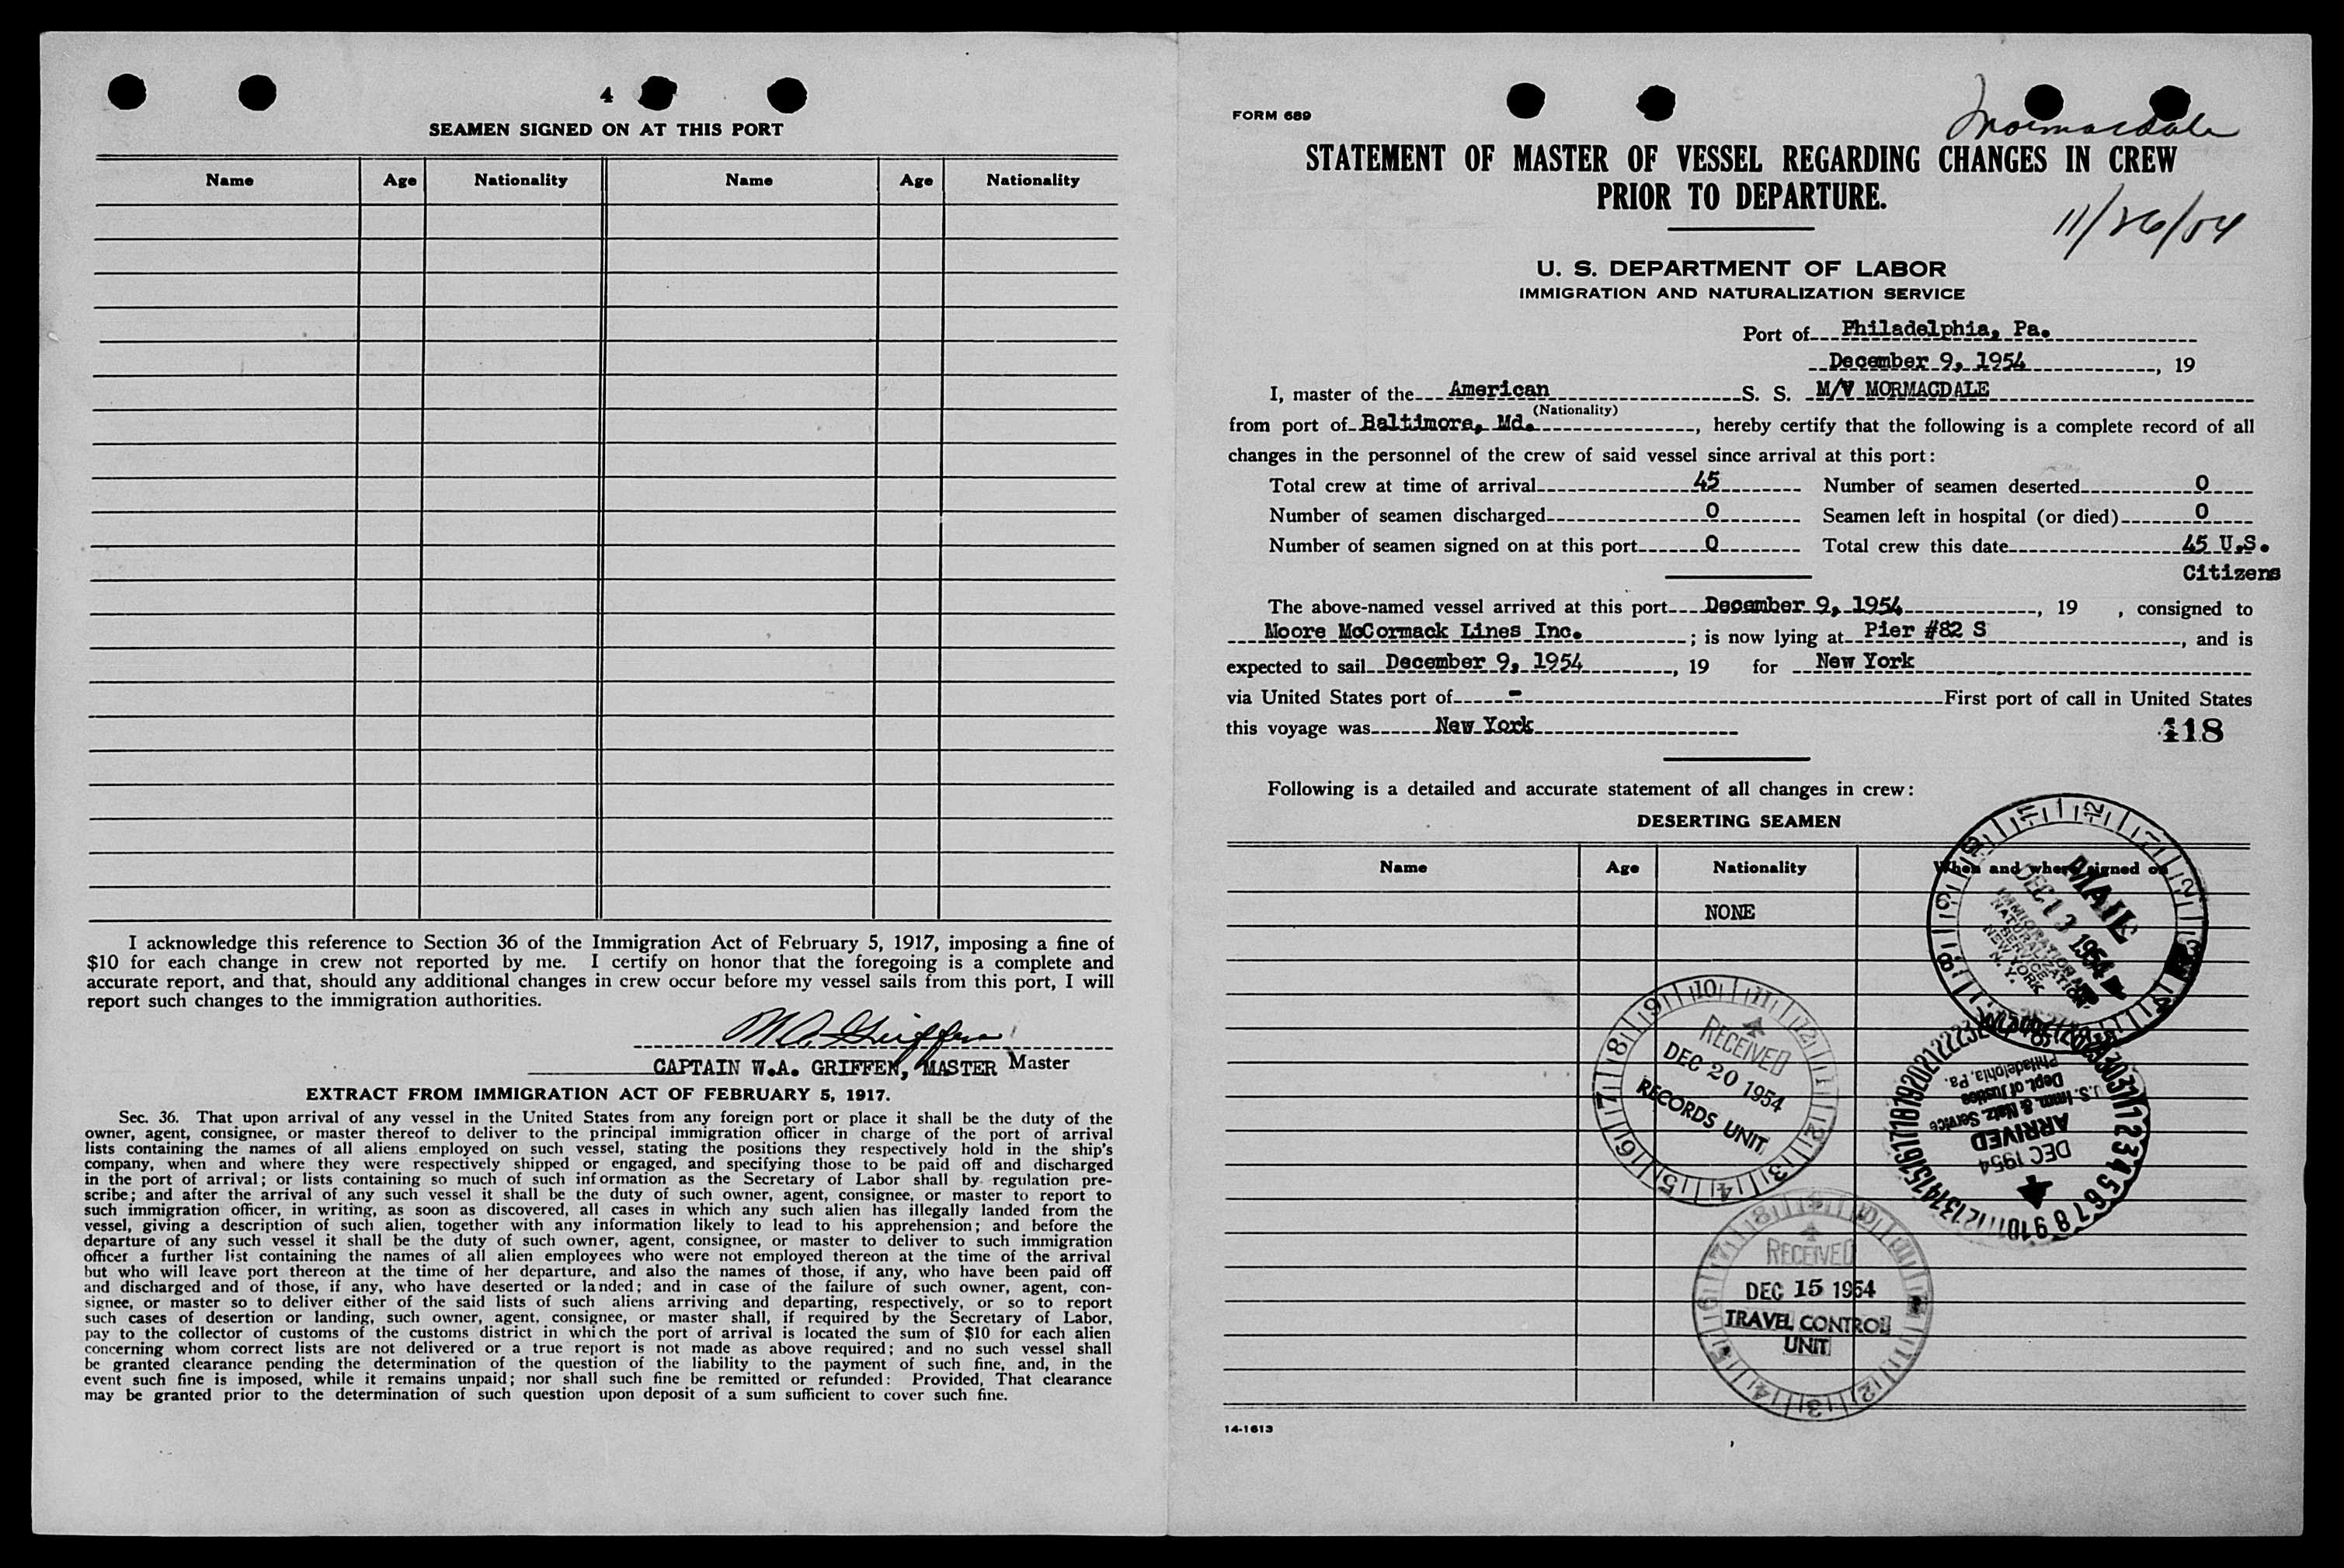 4
SEAMEN SIGNED ON AT THIS PORT
Name Age Nationality Name Age Nationality
I acknowledge this reference to Section 36 of the Immigration Act of February 5, 1917, imposing a fine of
$10 for each change in crew not reported by me. I certify on honor that the foregoing is a complete and
accurate report, and that, should any additional changes in crew occur before my vessel sails from this port, I will
report such changes to the immigration authorities.
W.A. Griffen
CAPTAIN W.A. GRIFFEN, MASTER Master
EXTRACT FROM IMMIGRATION ACT OF FEBRUARY 5, 1917.
Sec. 36. That upon arrival of any vessel in the United States from any foreign port or place it shall be the duty of the
owner, agent, consignee, or master thereof to deliver to the principal immigration officer in charge of the port of arrival
lists containing the names of all aliens employed on such vessel, stating the positions they respectively hold in the ship's
company, when and where they were respectively shipped or engaged, and specifying those to be paid off and discharged
in the port of arrival; or lists containing so much of such information as the Secretary of Labor shall by regulation pre-
scribe; and after the arrival of any such vessel it shall be the duty of such owner, agent, consignee, or master to report to
such immigration officer, in writing, as soon as discovered, all cases in which any such alien has illegally landed from the
vessel, giving a description of such alien, together with any information likely to lead to his apprehension; and before the
departure of any such vessel it shall be the duty of such owner, agent, consignee, or master to deliver to such immigration
officer a further list containing the names of all alien employees who were not employed thereon at the time of the arrival
but who will leave port thereon at the time of her departure, and also the names of those, if any, who have been paid off
and discharged and of those, if any, who have deserted or landed; and in case of the failure of such owner, agent, con-
signee, or master so to deliver either of the said lists of such aliens arriving and departing, respectively, or so to report
such cases of desertion or landing, such owner, agent, consignee, or master shall, if required by the Secretary of Labor,
pay to the collector of customs of the customs district in which the port of arrival is located the sum of $10 for each alien
concerning whom correct lists are not delivered or a true report is not made as above required; and no such vessel shall
be granted clearance pending the determination of the question of the liability to the payment of such fine, and, in the
event such fine is imposed, while it remains unpaid; nor shall such fine be remitted or refunded: Provided, That clearance
may be granted prior to the determination of such question upon deposit of a sum sufficient to cover such fine.
FORM 689
Mormacdale
STATEMENT OF MASTER OF VESSEL REGARDING CHANGES IN CREW
PRIOR TO DEPARTURE.
11/26/54
U. S. DEPARTMENT OF LABOR
IMMIGRATION AND NATURALIZATION SERVICE
Port of Philadelphia, Pa.
December 9, 1954, 19
I, master of the American S. S. M/V MORMACDALE
(Nationality)
from port of Baltimore, Md., hereby certify that the following is a complete record of all
changes in the personnel of the crew of said vessel since arrival at this port:
Total crew at time of arrival 45 Number of seamen deserted 0
Number of seamen discharged 0 Seamen left in hospital (or died) 0
Number of seamen signed on at this port 0 Total crew this date 45 U.S.
Citizens
The above-named vessel arrived at this port December 9, 1954, 19 , consigned to
Moore McCormack Lines Inc.; is now lying at Pier #82 S, and is
expected to sail December 9, 1954, 19 for New York
via United States port of - First port of call in United States
this voyage was New York
418
Following is a detailed and accurate statement of all changes in crew:
DESERTING SEAMEN
Name Age Nationality When and where signed on
NONE
MAIL
DEC 13 1954
IMMIGRATION AND
NATURALIZATION
SERVICE
NEW YORK
N. Y.
RECEIVED
DEC 20 1954
RECORDS UNIT
Philadelphia, Pa.
Dept. of Justice
U.S. Imm. & Natz. Service
ARRIVED
DEC 1954
RECEIVED
DEC 15 1954
TRAVEL CONTROL
UNIT
14-1613